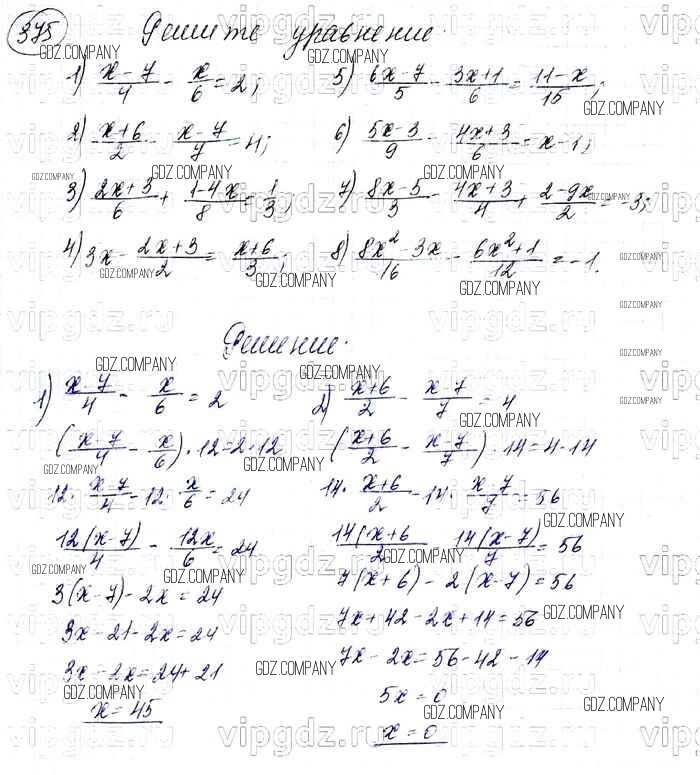 375 Решите уравнение.
1) (x-7)/4 - x/6 = 2; 5) (6x-7)/5 - (3x+1)/6 = (11-x)/15;
2) (x+6)/2 - (x-7)/7 = 4; 6) (5x-3)/9 - (4x+3)/6 = x-1;
3) (2x+3)/6 + (1-4x)/8 = 1/3; 7) (8x-5)/3 - (4x+3)/4 + (2-9x)/2 = -3;
4) 3x - (2x+3)/2 = (x+6)/3; 8) (8x²-3x)/16 - (6x²+1)/12 = -1.
Решение.
1) (x-7)/4 - x/6 = 2
((x-7)/4 - x/6)·12=2·12
12·(x-7)/4 - 12·x/6 = 24
12(x-7)/4 - 12x/6 = 24
3(x-7)-2x=24
3x-21-2x=24
3x-2x=24+21
x=45
2) (x+6)/2 - (x-7)/7 = 4
((x+6)/2 - (x-7)/7)·14=4·14
14·(x+6)/2 - 14·(x-7)/7 = 56
14(x+6/2 - 14(x-7)/7 = 56
7(x+6)-2(x-7)=56
7x+42-2x+14=56
7x-2x=56-42-14
5x=0
x=0
GDZ.COMPANY
vipgdz.ru